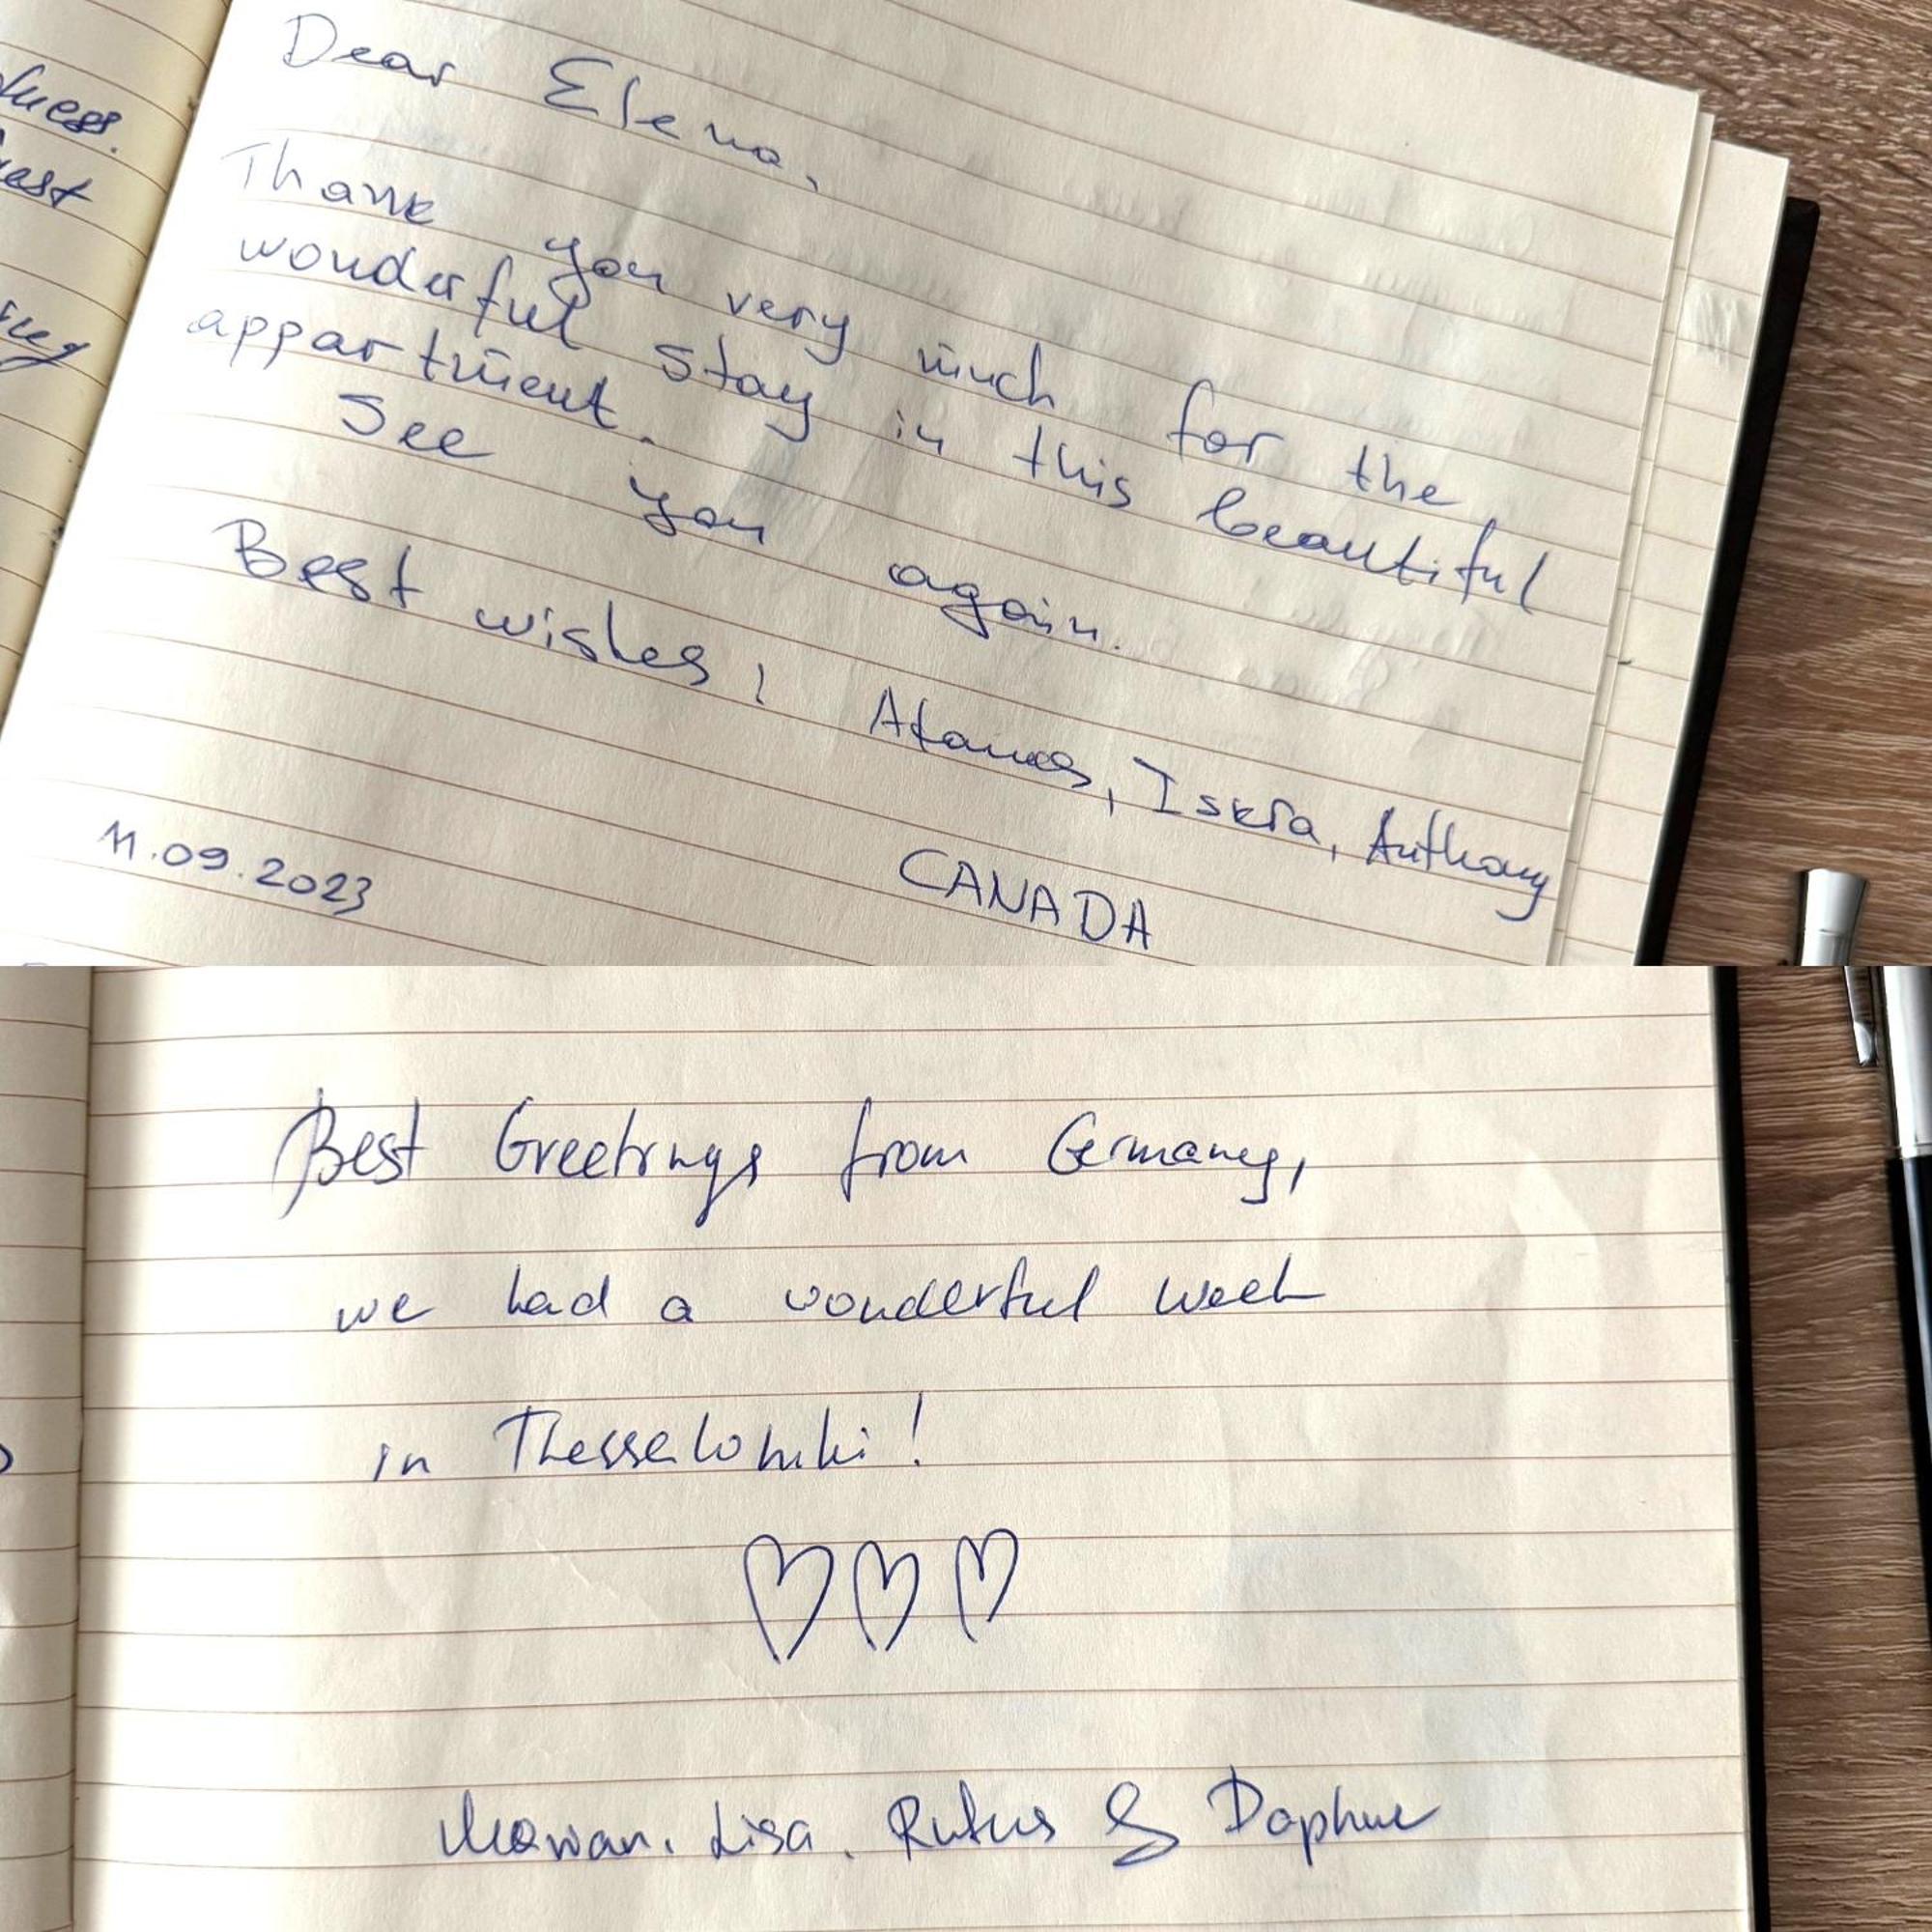 Dear Elena,
Thank you very much for the
wonderful stay in this beautiful
appartment.
See you again.
Best wishes, Atanas, Iskra, Anthony
11.09.2023 CANADA
Best Greetings from Germany,
we had a wonderful week
in Thesseloniki!
Lisa, Rufus & Daphne